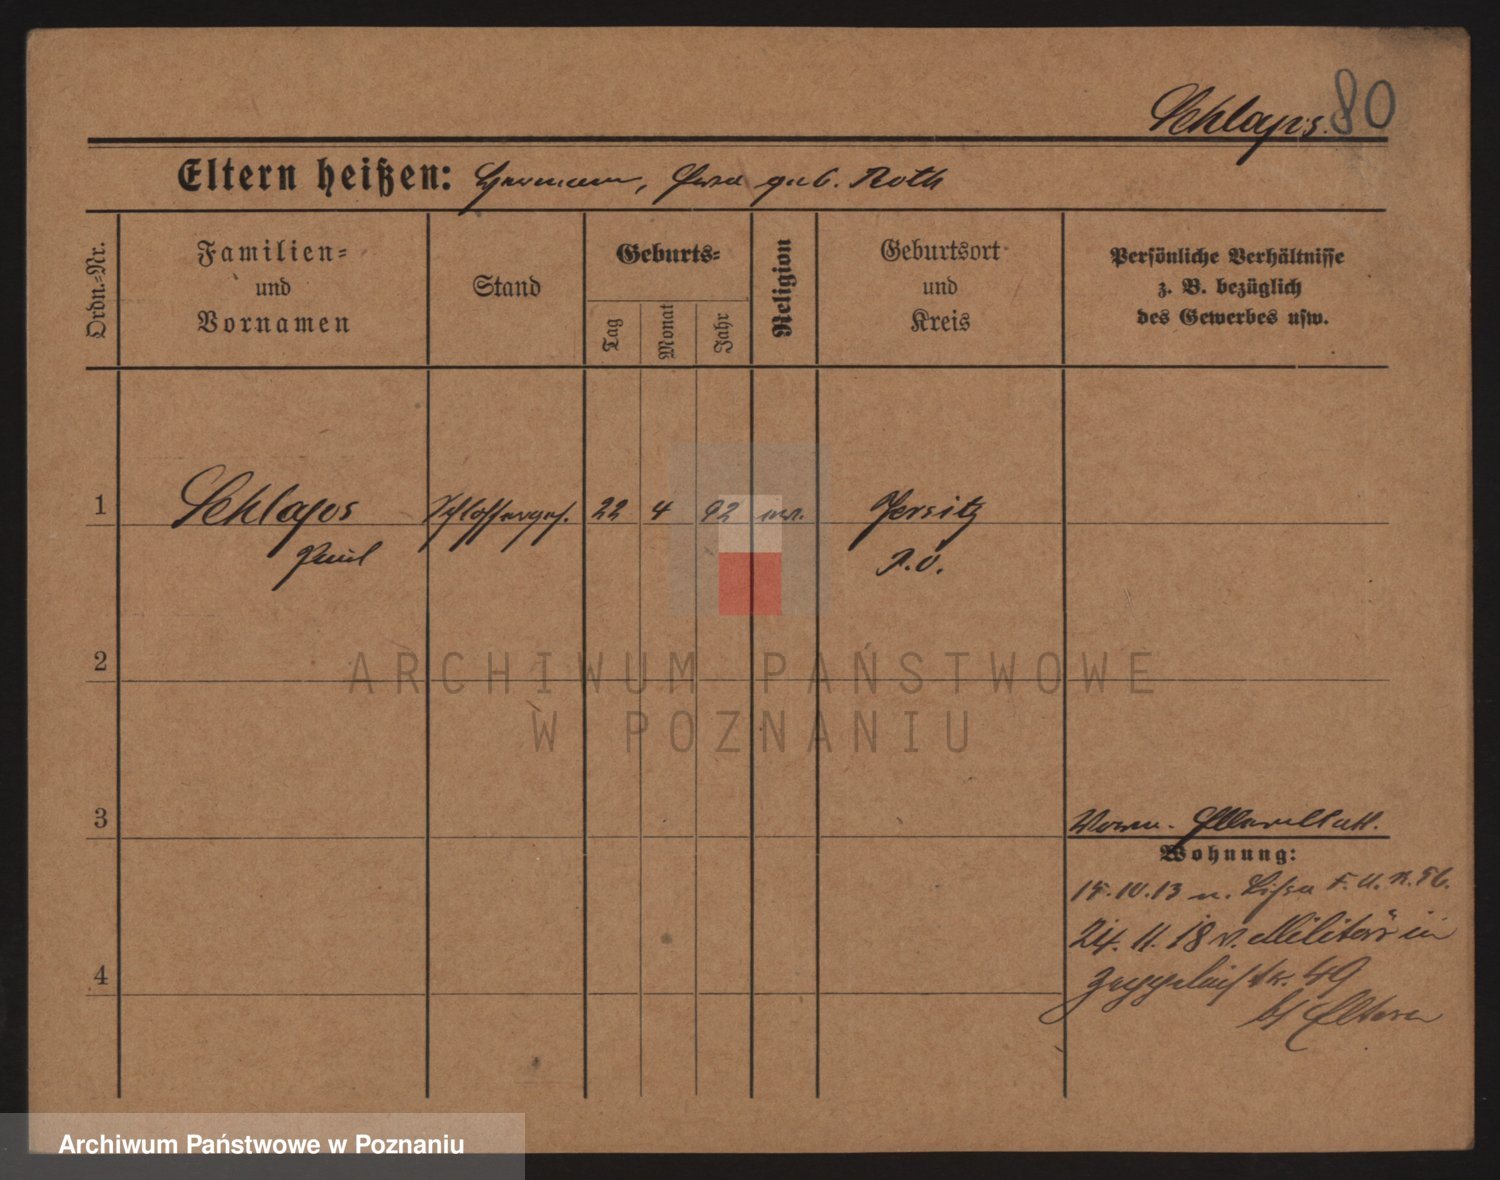 Schlaps. 80
Eltern heißen: Hermann, geb. Roth
Ordn.-Nr.
Familien-
und
Vornamen
Stand
Geburts-
Tag
Monat
Jahr
Religion
Geburtsort
und
Kreis
Persönliche Verhältnisse
z. B. bezüglich
des Gewerbes usw.
1
Schlaps
Paul
Schlosserges.
22
4
92
Jersitz
P.O.
2
ARCHIWUM PAŃSTWOWE
W POZNANIU
3
Wohnung:
15.10.13 n. Lissa F.A.R. 56.
24. 11. 18 v. Militär in
Zeppelinstr. 49
b/ Eltern
4
Archiwum Państwowe w Poznaniu